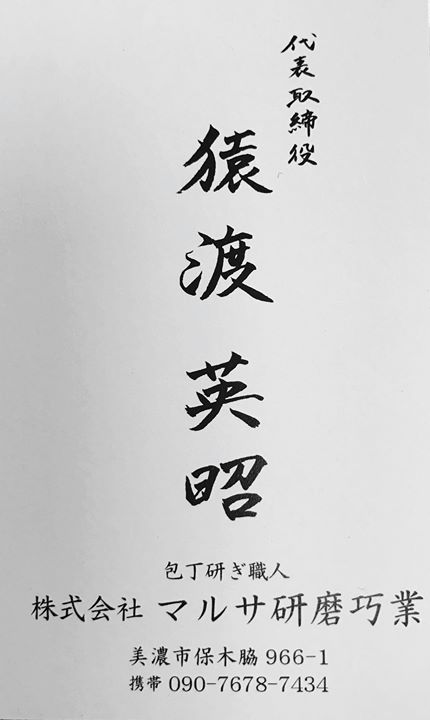 代表取締役
猿渡英昭
包丁研ぎ職人
株式会社 マルサ研磨巧業
美濃市保木脇 966-1
携帯 090-7678-7434